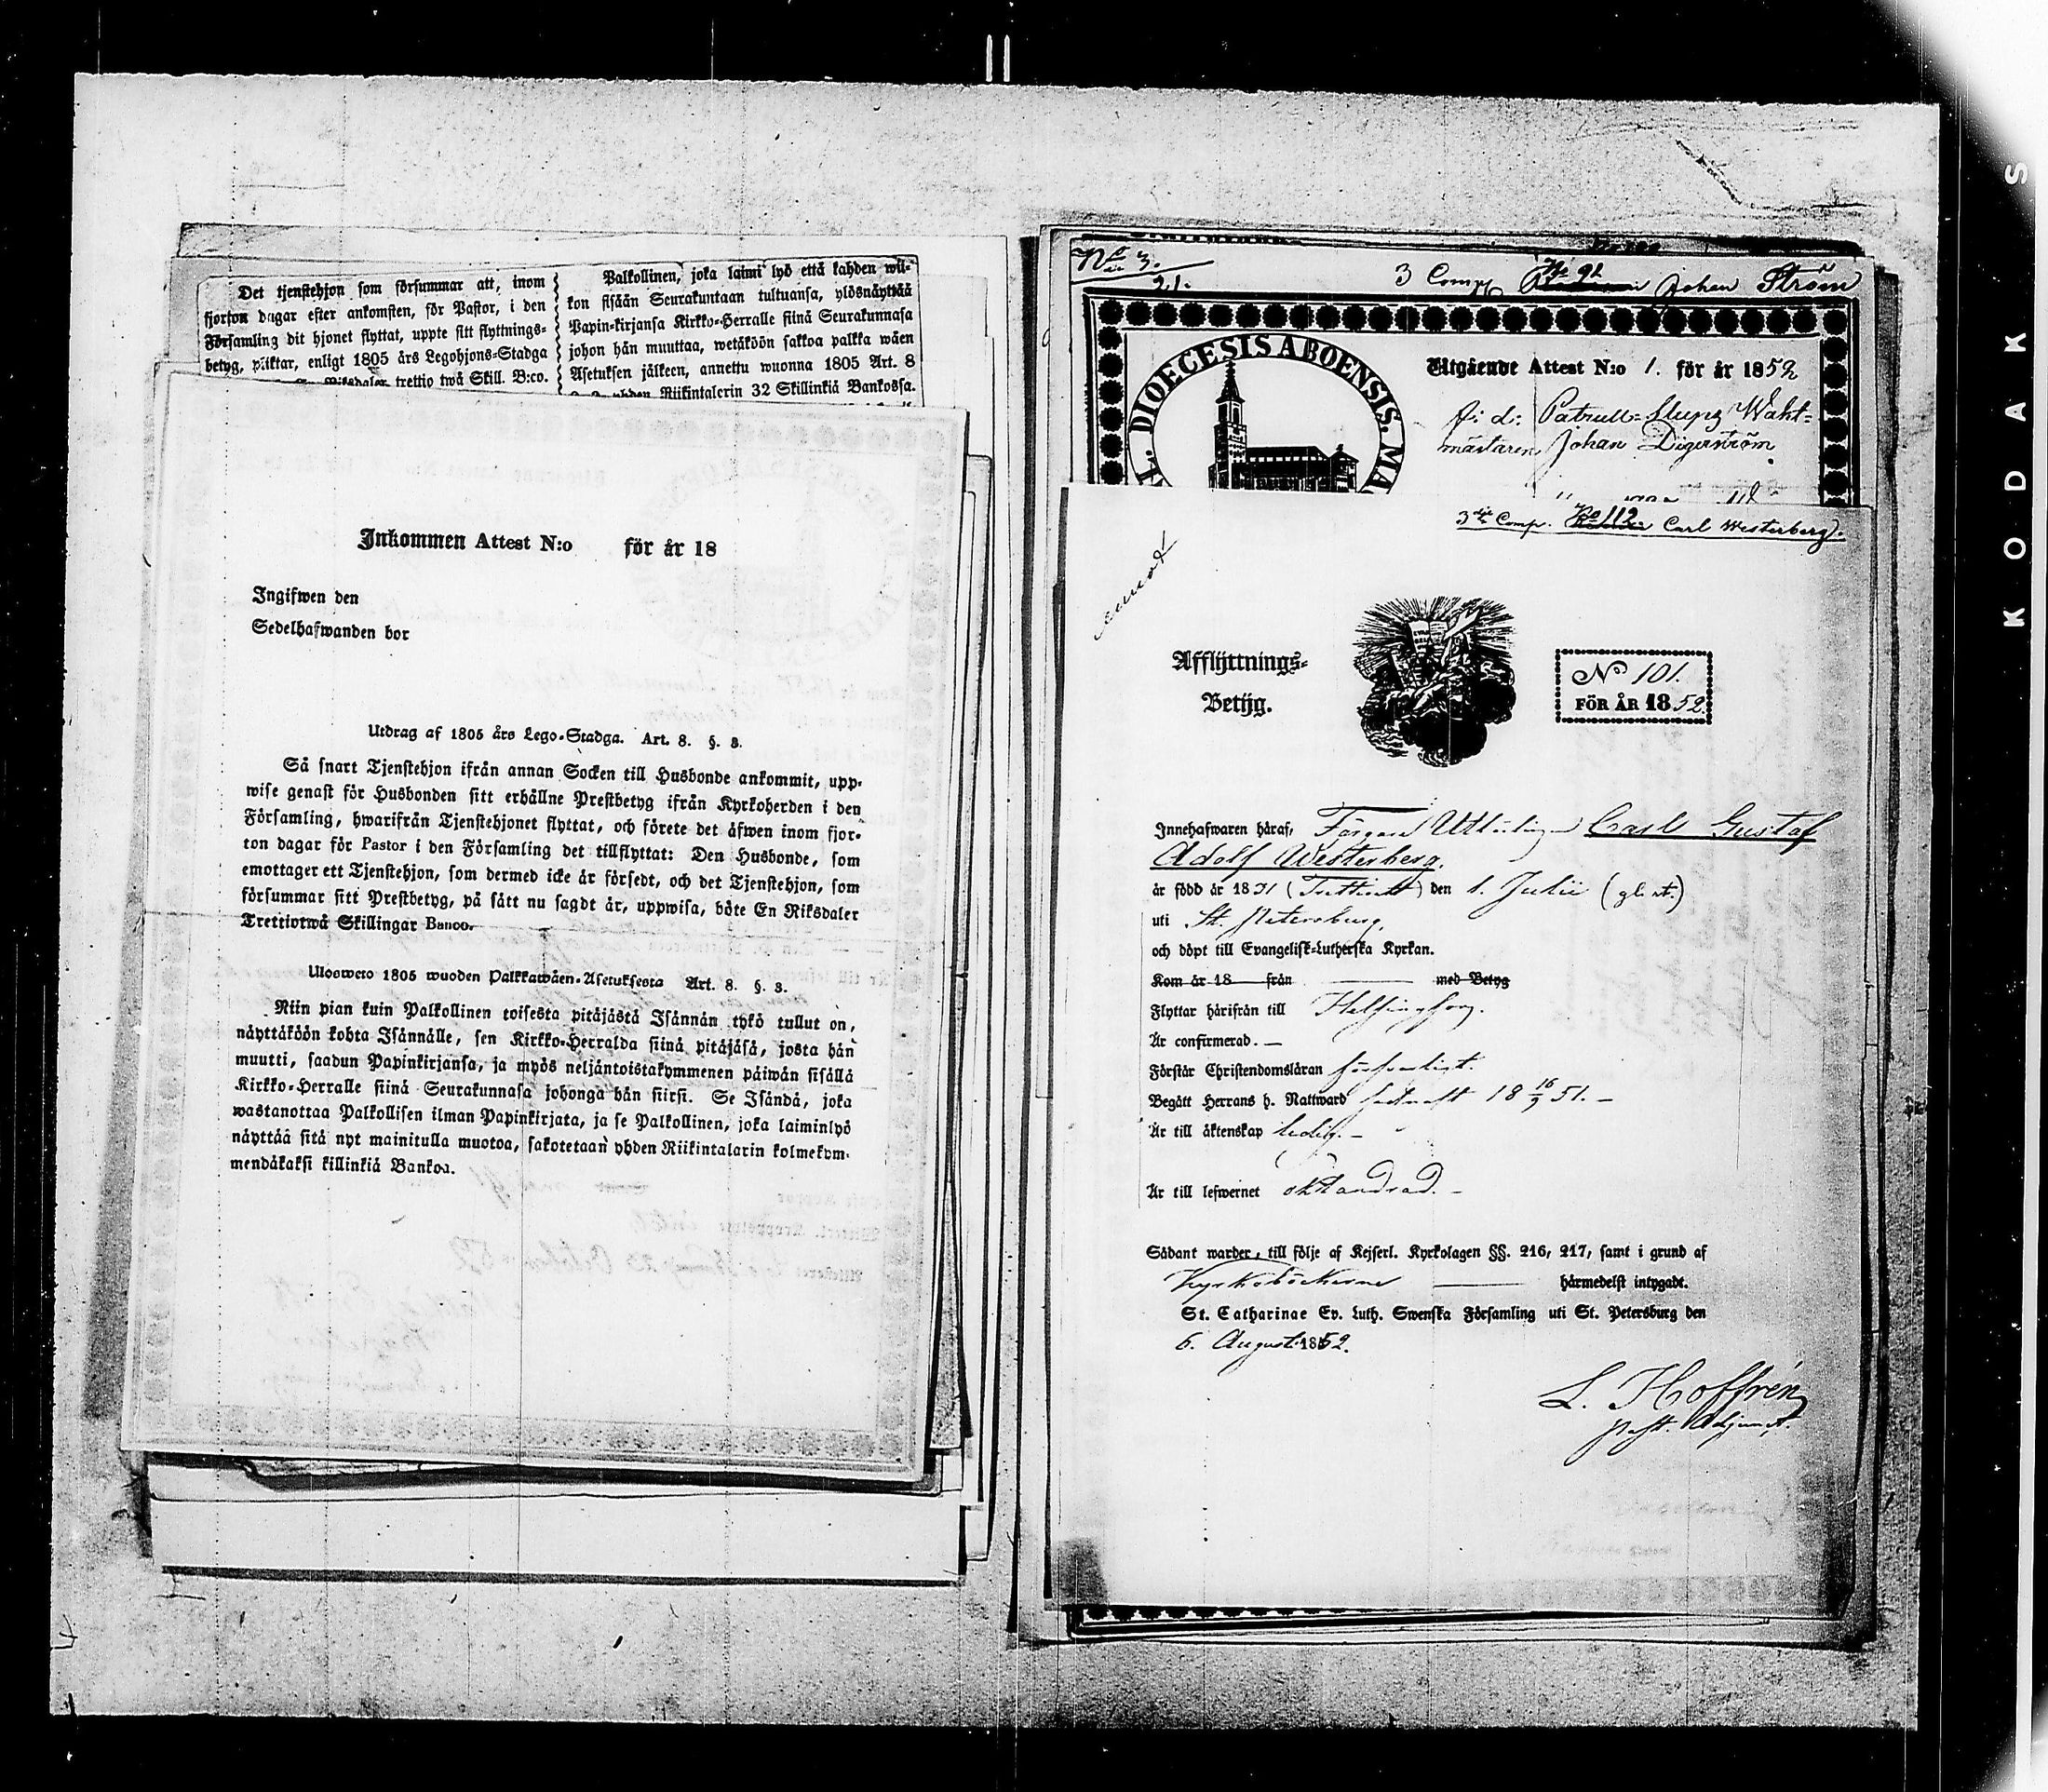 Det tjenstehjon som försummar att, inom
fjorton dagar efter ankomsten, för Pastor, i den
Församling dit hjonet flyttat, uppte sitt flyttnings-
betyg, pliktar, enligt 1805 års Legohjons-Stadga
Riksdaler trettio twå Skill. B:co.
Palkollinen, joka laimi lyö että kahden wii-
kon sisään Seurakuntaan tultuansa, ylösnäyttää
Papin-kirjansa Kirkko-Herralle siinä Seurakunnasa
johon hän muuttaa, wetäköön sakkoa palkka wäen
Asetuksen jälkeen, annettu wuonna 1805 Art. 8
yhden Riikintalerin 32 Skillinkiä Bankossa.
Inkommen Attest N:o för år 18
Ingifwen den
Sedelhafwanden bor
Utdrag af 1805 års Lego-Stadga. Art. 8. §. 3.
Så snart Tjenstehjon ifrån annan Socken till Husbonde ankommit, upp-
wise genast för Husbonden sitt erhållne Prestbetyg ifrån Kyrkoherden i den
Församling, hwarifrån Tjenstehjonet flyttat, och förete det äfwen inom fjor-
ton dagar för Pastor i den Församling det tillflyttat: Den Husbonde, som
emottager ett Tjenstehjon, som dermed icke är försedt, och det Tjenstehjon, som
försummar sitt Prestbetyg, på sätt nu sagdt är, uppwisa, böte En Riksdaler
Trettiotwå Skillingar Banco.
Ulosweto 1805 wuoden Palkkawäen-Asetuksesta Art. 8. §. 3.
Niin pian kuin Palkollinen toisesta pitäjästä Isännän tykö tullut on,
näyttäköön kohta Isännälle, sen Kirkko-Herralda siinä pitäjäsä, josta hän
muutti, saadun Papinkirjansa, ja myös neljäntoistakymmenen päiwän sisällä
Kirkko-Herralle siinä Seurakunnasa johonga hän siirsi. Se Isändä, joka
wastanottaa Palkollisen ilman Papinkirjata, ja se Palkollinen, joka laiminlyö
näyttää sitä nyt mainitulla muotoa, sakotetaan yhden Riikintalarin kolmekym-
mendäkaksi killinkiä Bankoa.
No 3.
21.
3 Comp No 92 Johan Ström
DIOECESIS ABOENSIS. MA
Utgående Attest N:o 1. för år 1852
f. d: Patrull-Slups Wakt-
mästaren Johan Digerström
3dje Comp. No 112 Carl Westerberg.
Afflyttnings-
Betyg.
No 101.
FÖR ÅR 1852.
Innehafwaren häraf, Färgare Utlärlingen Carl Gustaf
Adolf Westerberg.
är född år 1831 (Trettioett) den 1. Julii (gl. st.)
uti St. Petersburg.
och döpt till Evangelisk-Lutherska Kyrkan.
Kom år 18 från med Betyg
Flyttar härifrån till Helsingfors.
Är confirmerad. —
Förstår Christendomsläran försvarligt.
Begått Herrans h. Nattward sednast 18 16/9 51. —
Är till äktenskap ledig. —
Är till lefwernet oklandrad. —
Sådant warder, till följe af Kejserl. Kyrkolagen §§. 216, 217, samt i grund af
Kyrkoböckerne härmedelst intygadt.
St. Catharinae Ev. Luth. Swenska Församling uti St. Petersburg den
6. August 1852.
L. Hoffrén
past. Adjunct.
KODAK S